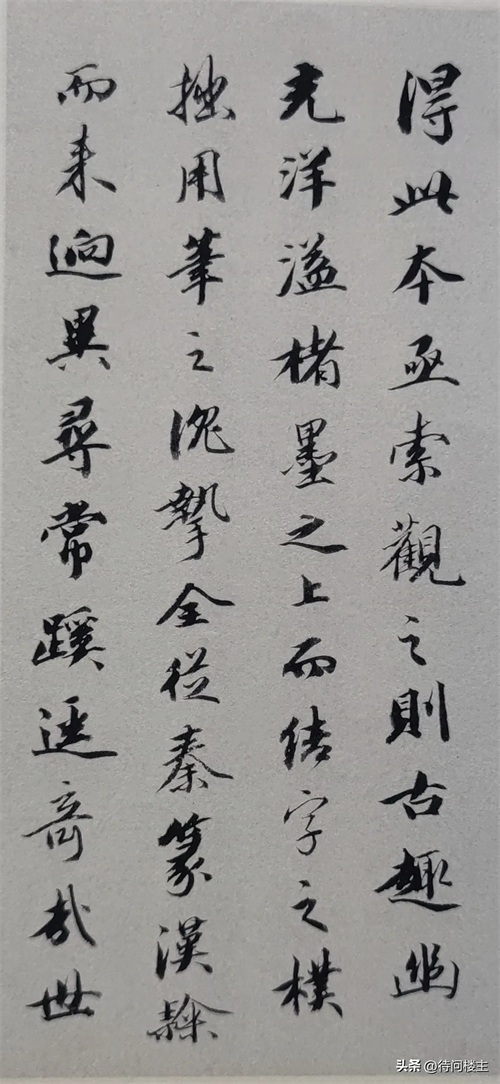 得此本亟索觀之則古趣幽
光洋溢楮墨之上而結字之樸
拙用筆之沈摯全從秦篆漢隸
而来迥異尋常蹊逕奇哉世
头条 @待问楼主